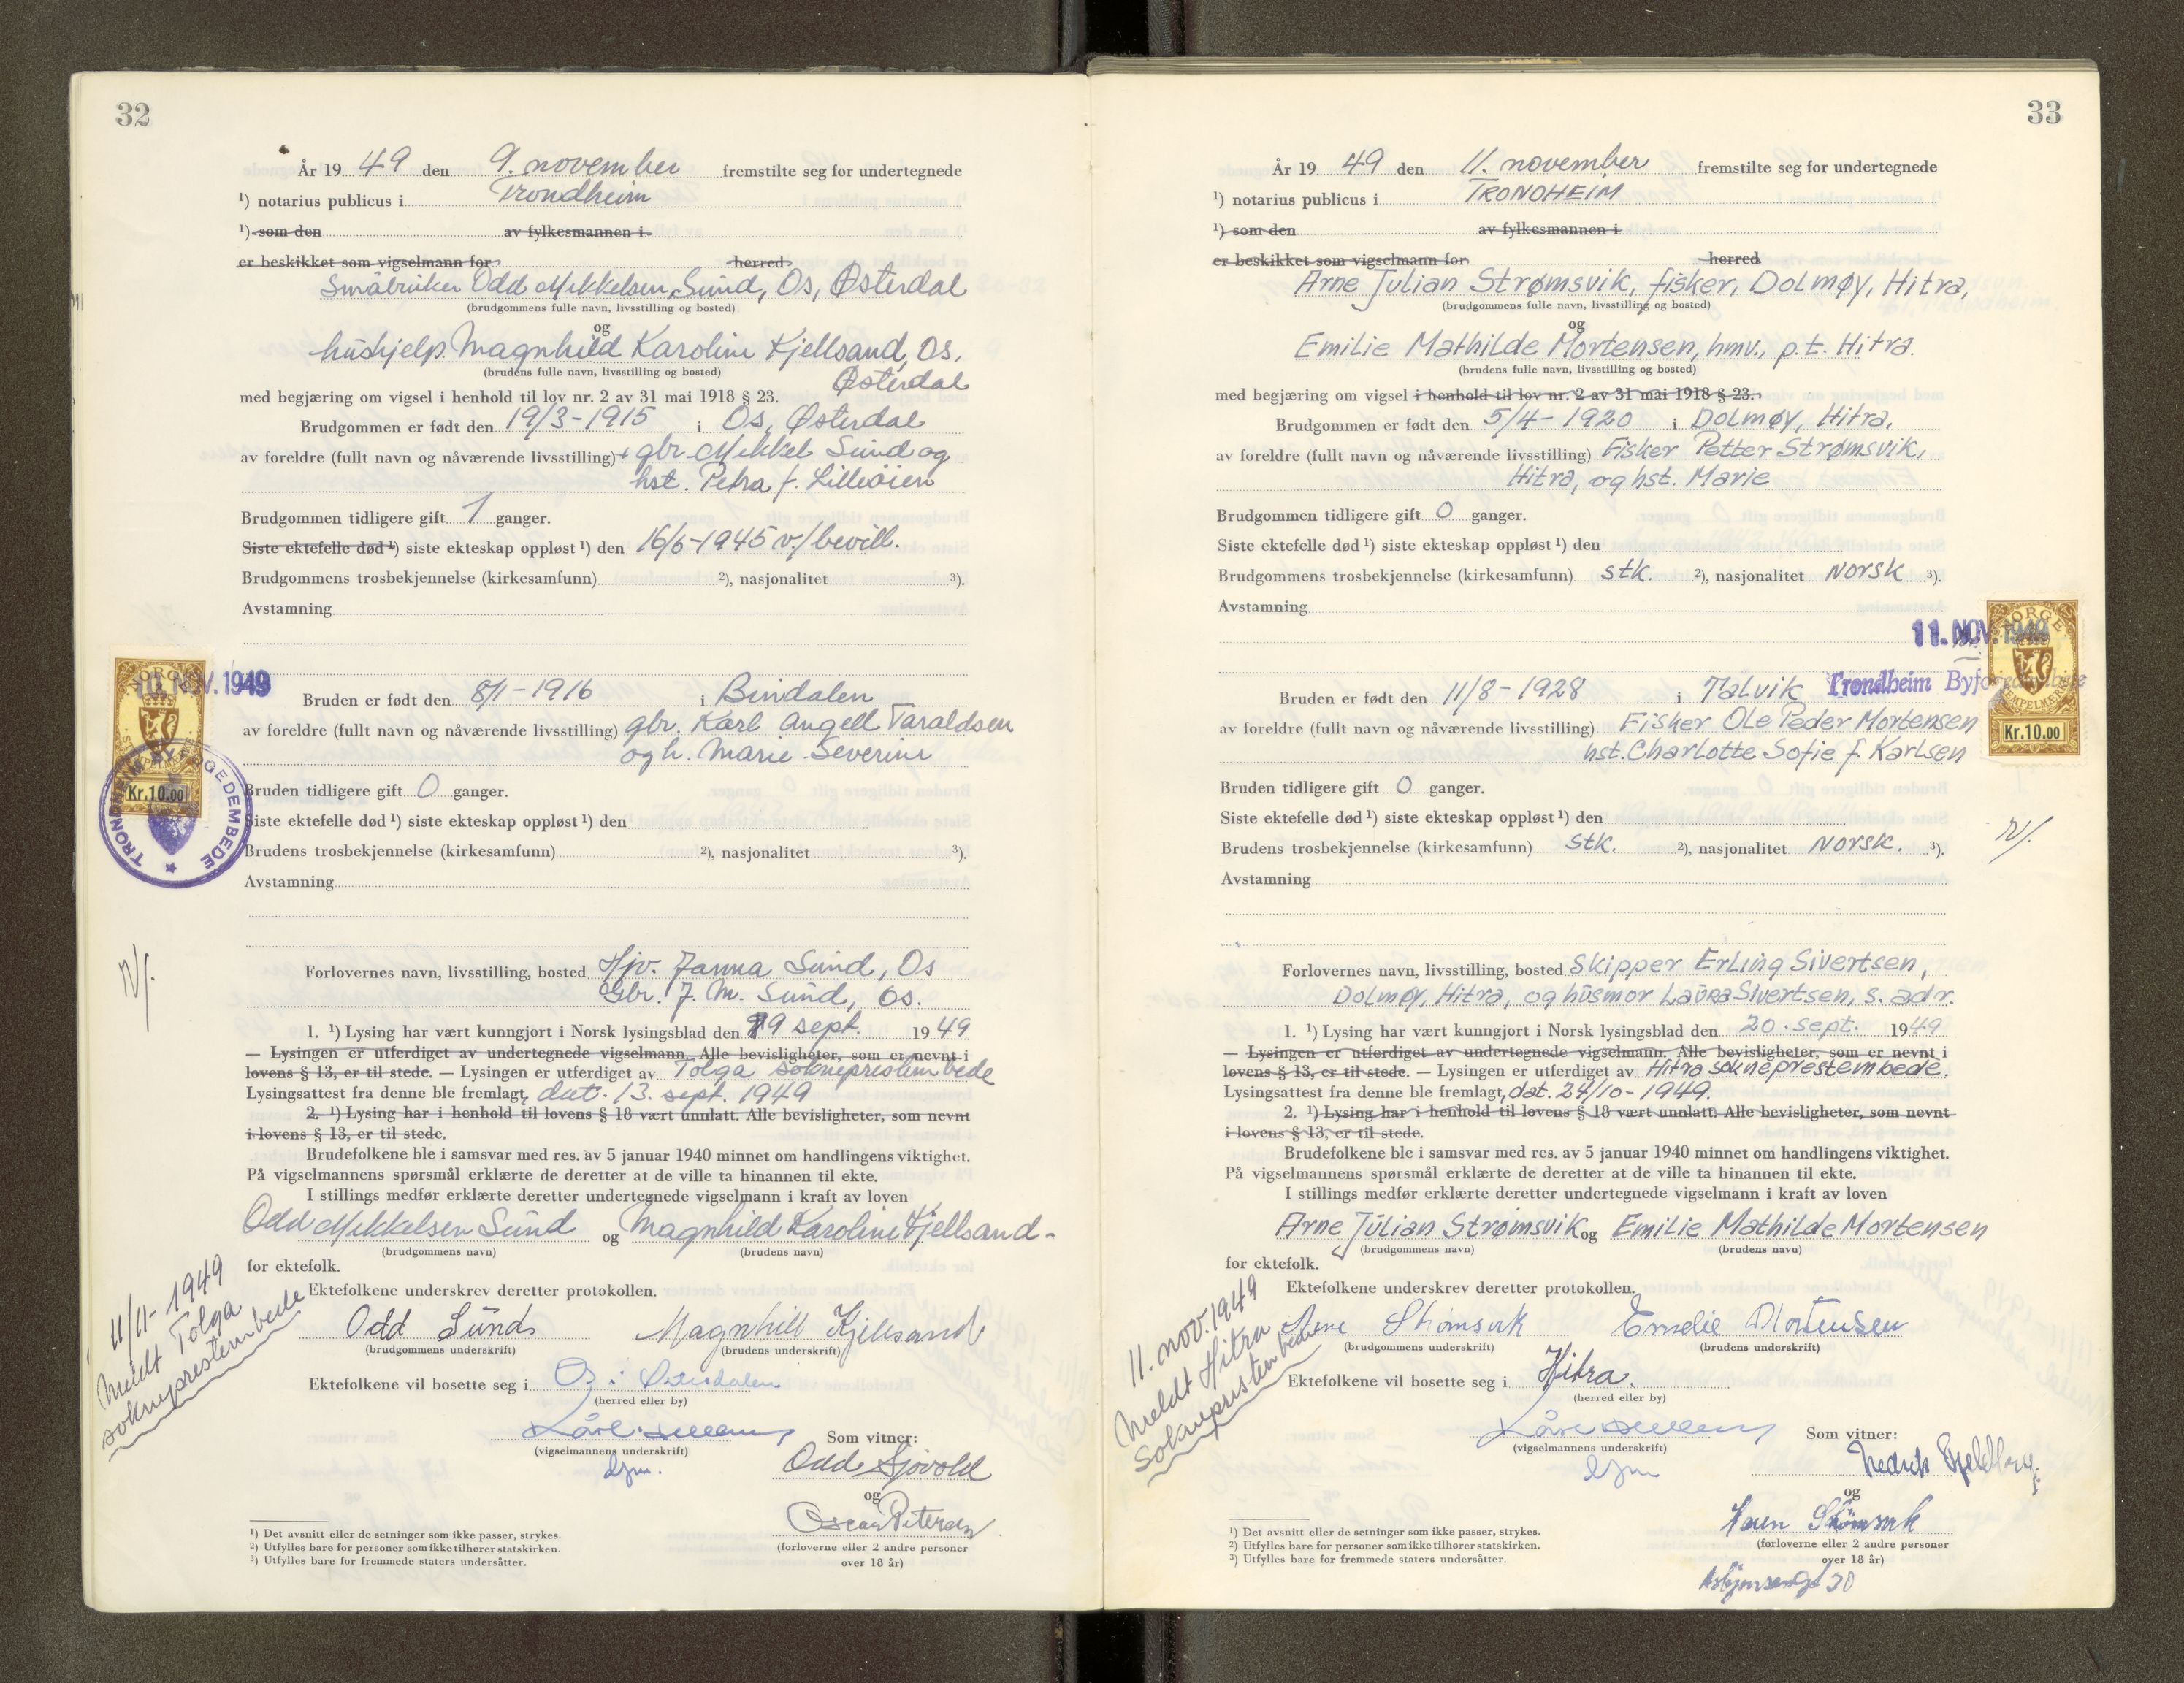 32
År 19 49 den 9. november fremstilte seg for undertegnede
¹) notarius publicus i Trondheim
¹) som den av fylkesmannen i
er beskikket som vigselmann for herred
Småbruker Odd Mikkelsen Sund, Os, Østerdal
(brudgommens fulle navn, livsstilling og bosted)
og
hushjelp Magnhild Karoline Kjellsand, Os,
(brudens fulle navn, livsstilling og bosted)
Østerdal
med begjæring om vigsel i henhold til lov nr. 2 av 31 mai 1918 § 23.
Brudgommen er født den 19/3-1915 i Os, Østerdal
av foreldre (fullt navn og nåværende livsstilling) + gbr. Mikkel Sund og
hst. Petra f. Lilleøien
Brudgommen tidligere gift 1 ganger.
Siste ektefelle død ¹) siste ekteskap oppløst ¹) den 16/6-1945 v/bevill.
Brudgommens trosbekjennelse (kirkesamfunn) ²), nasjonalitet ³).
Avstamning
10. NOV. 1949
NORGE
STEMPELMERKE
Kr.10.00
TRONDHEIM BYFOGEDEMBEDE
Bruden er født den 8/1-1916 i Bindalen
av foreldre (fullt navn og nåværende livsstilling) gbr. Karl Angell Taraldsen
og h. Marie Severine
Bruden tidligere gift 0 ganger.
Siste ektefelle død ¹) siste ekteskap oppløst ¹) den
Brudens trosbekjennelse (kirkesamfunn) ²), nasjonalitet ³).
Avstamning
N/.
Forlovernes navn, livsstilling, bosted Hjv. Janna Sund, Os
Gbr. J. M. Sund, Os.
1. ¹) Lysing har vært kunngjort i Norsk lysingsblad den 19 sept. 19 49
— Lysingen er utferdiget av undertegnede vigselmann. Alle bevisligheter, som er nevnt i
lovens § 13, er til stede. — Lysingen er utferdiget av Tolga sokneprestembede
Lysingsattest fra denne ble fremlagt, dat. 13. sept. 1949
2. ¹) Lysing har i henhold til lovens § 18 vært unnlatt. Alle bevisligheter, som nevnt
i lovens § 13, er til stede.
Brudefolkene ble i samsvar med res. av 5 januar 1940 minnet om handlingens viktighet.
På vigselmannens spørsmål erklærte de deretter at de ville ta hinannen til ekte.
I stillings medfør erklærte deretter undertegnede vigselmann i kraft av loven
Odd Mikkelsen Sund og Magnhild Karoline Kjellsand-
(brudgommens navn) (brudens navn)
for ektefolk.
Ektefolkene underskrev deretter protokollen.
11/11-1949
Meldt Tolga
sokneprestembede
Odd Sund Magnhild Kjellsand
(brudgommens underskrift) (brudens underskrift)
Ektefolkene vil bosette seg i Os i Østerdalen
(herred eller by)
(vigselmannens underskrift) Som vitner:
Odd Sjøvold
og
Oscar Petersen
(forloverne eller 2 andre personer
over 18 år)
¹) Det avsnitt eller de setninger som ikke passer, strykes.
²) Utfylles bare for personer som ikke tilhører statskirken.
³) Utfylles bare for fremmede staters undersåtter.
33
År 19 49 den 11. november fremstilte seg for undertegnede
¹) notarius publicus i TRONDHEIM
¹) som den av fylkesmannen i
er beskikket som vigselmann for herred
Arne Julian Strømsvik, fisker, Dolmøy, Hitra,
(brudgommens fulle navn, livsstilling og bosted)
og
Emilie Mathilde Mortensen, hmv., p.t. Hitra.
(brudens fulle navn, livsstilling og bosted)
med begjæring om vigsel i henhold til lov nr. 2 av 31 mai 1918 § 23.
Brudgommen er født den 5/4-1920 i Dolmøy, Hitra,
av foreldre (fullt navn og nåværende livsstilling) Fisker Petter Strømsvik,
Hitra, og hst. Marie
Brudgommen tidligere gift 0 ganger.
Siste ektefelle død ¹) siste ekteskap oppløst ¹) den
Brudgommens trosbekjennelse (kirkesamfunn) stk. ²), nasjonalitet Norsk ³).
Avstamning
11. NOV. 1949
NORGE
STEMPELMERKE
Kr.10.00
Trondheim Byfogedembede
Bruden er født den 11/8-1928 i Talvik
av foreldre (fullt navn og nåværende livsstilling) Fisker Ole Peder Mortensen
hst. Charlotte Sofie f. Karlsen
Bruden tidligere gift 0 ganger.
Siste ektefelle død ¹) siste ekteskap oppløst ¹) den
Brudens trosbekjennelse (kirkesamfunn) stk. ²), nasjonalitet Norsk. ³).
N/.
Avstamning
Forlovernes navn, livsstilling, bosted Skipper Erling Sivertsen,
Dolmøy, Hitra, og husmor Laura Sivertsen, s. adr.
1. ¹) Lysing har vært kunngjort i Norsk lysingsblad den 20. sept. 19 49
— Lysingen er utferdiget av undertegnede vigselmann. Alle bevisligheter, som er nevnt i
lovens § 13, er til stede. — Lysingen er utferdiget av Hitra sokneprestembede.
Lysingsattest fra denne ble fremlagt, dat. 24/10-1949.
2. ¹) Lysing har i henhold til lovens § 18 vært unnlatt. Alle bevisligheter, som nevnt
i lovens § 13, er til stede.
Brudefolkene ble i samsvar med res. av 5 januar 1940 minnet om handlingens viktighet.
På vigselmannens spørsmål erklærte de deretter at de ville ta hinannen til ekte.
I stillings medfør erklærte deretter undertegnede vigselmann i kraft av loven
Arne Julian Strømsvik og Emilie Mathilde Mortensen
(brudgommens navn) (brudens navn)
for ektefolk.
Ektefolkene underskrev deretter protokollen.
11. nov. 1949
Meldt Hitra
Sokneprestembede
Arne Strømsvik Emelie Mortensen
(brudgommens underskrift) (brudens underskrift)
Ektefolkene vil bosette seg i Hitra.
(herred eller by)
(vigselmannens underskrift) Som vitner:
og
Strømsvik
(forloverne eller 2 andre personer
over 18 år)
¹) Det avsnitt eller de setninger som ikke passer, strykes.
²) Utfylles bare for personer som ikke tilhører statskirken.
³) Utfylles bare for fremmede staters undersåtter.